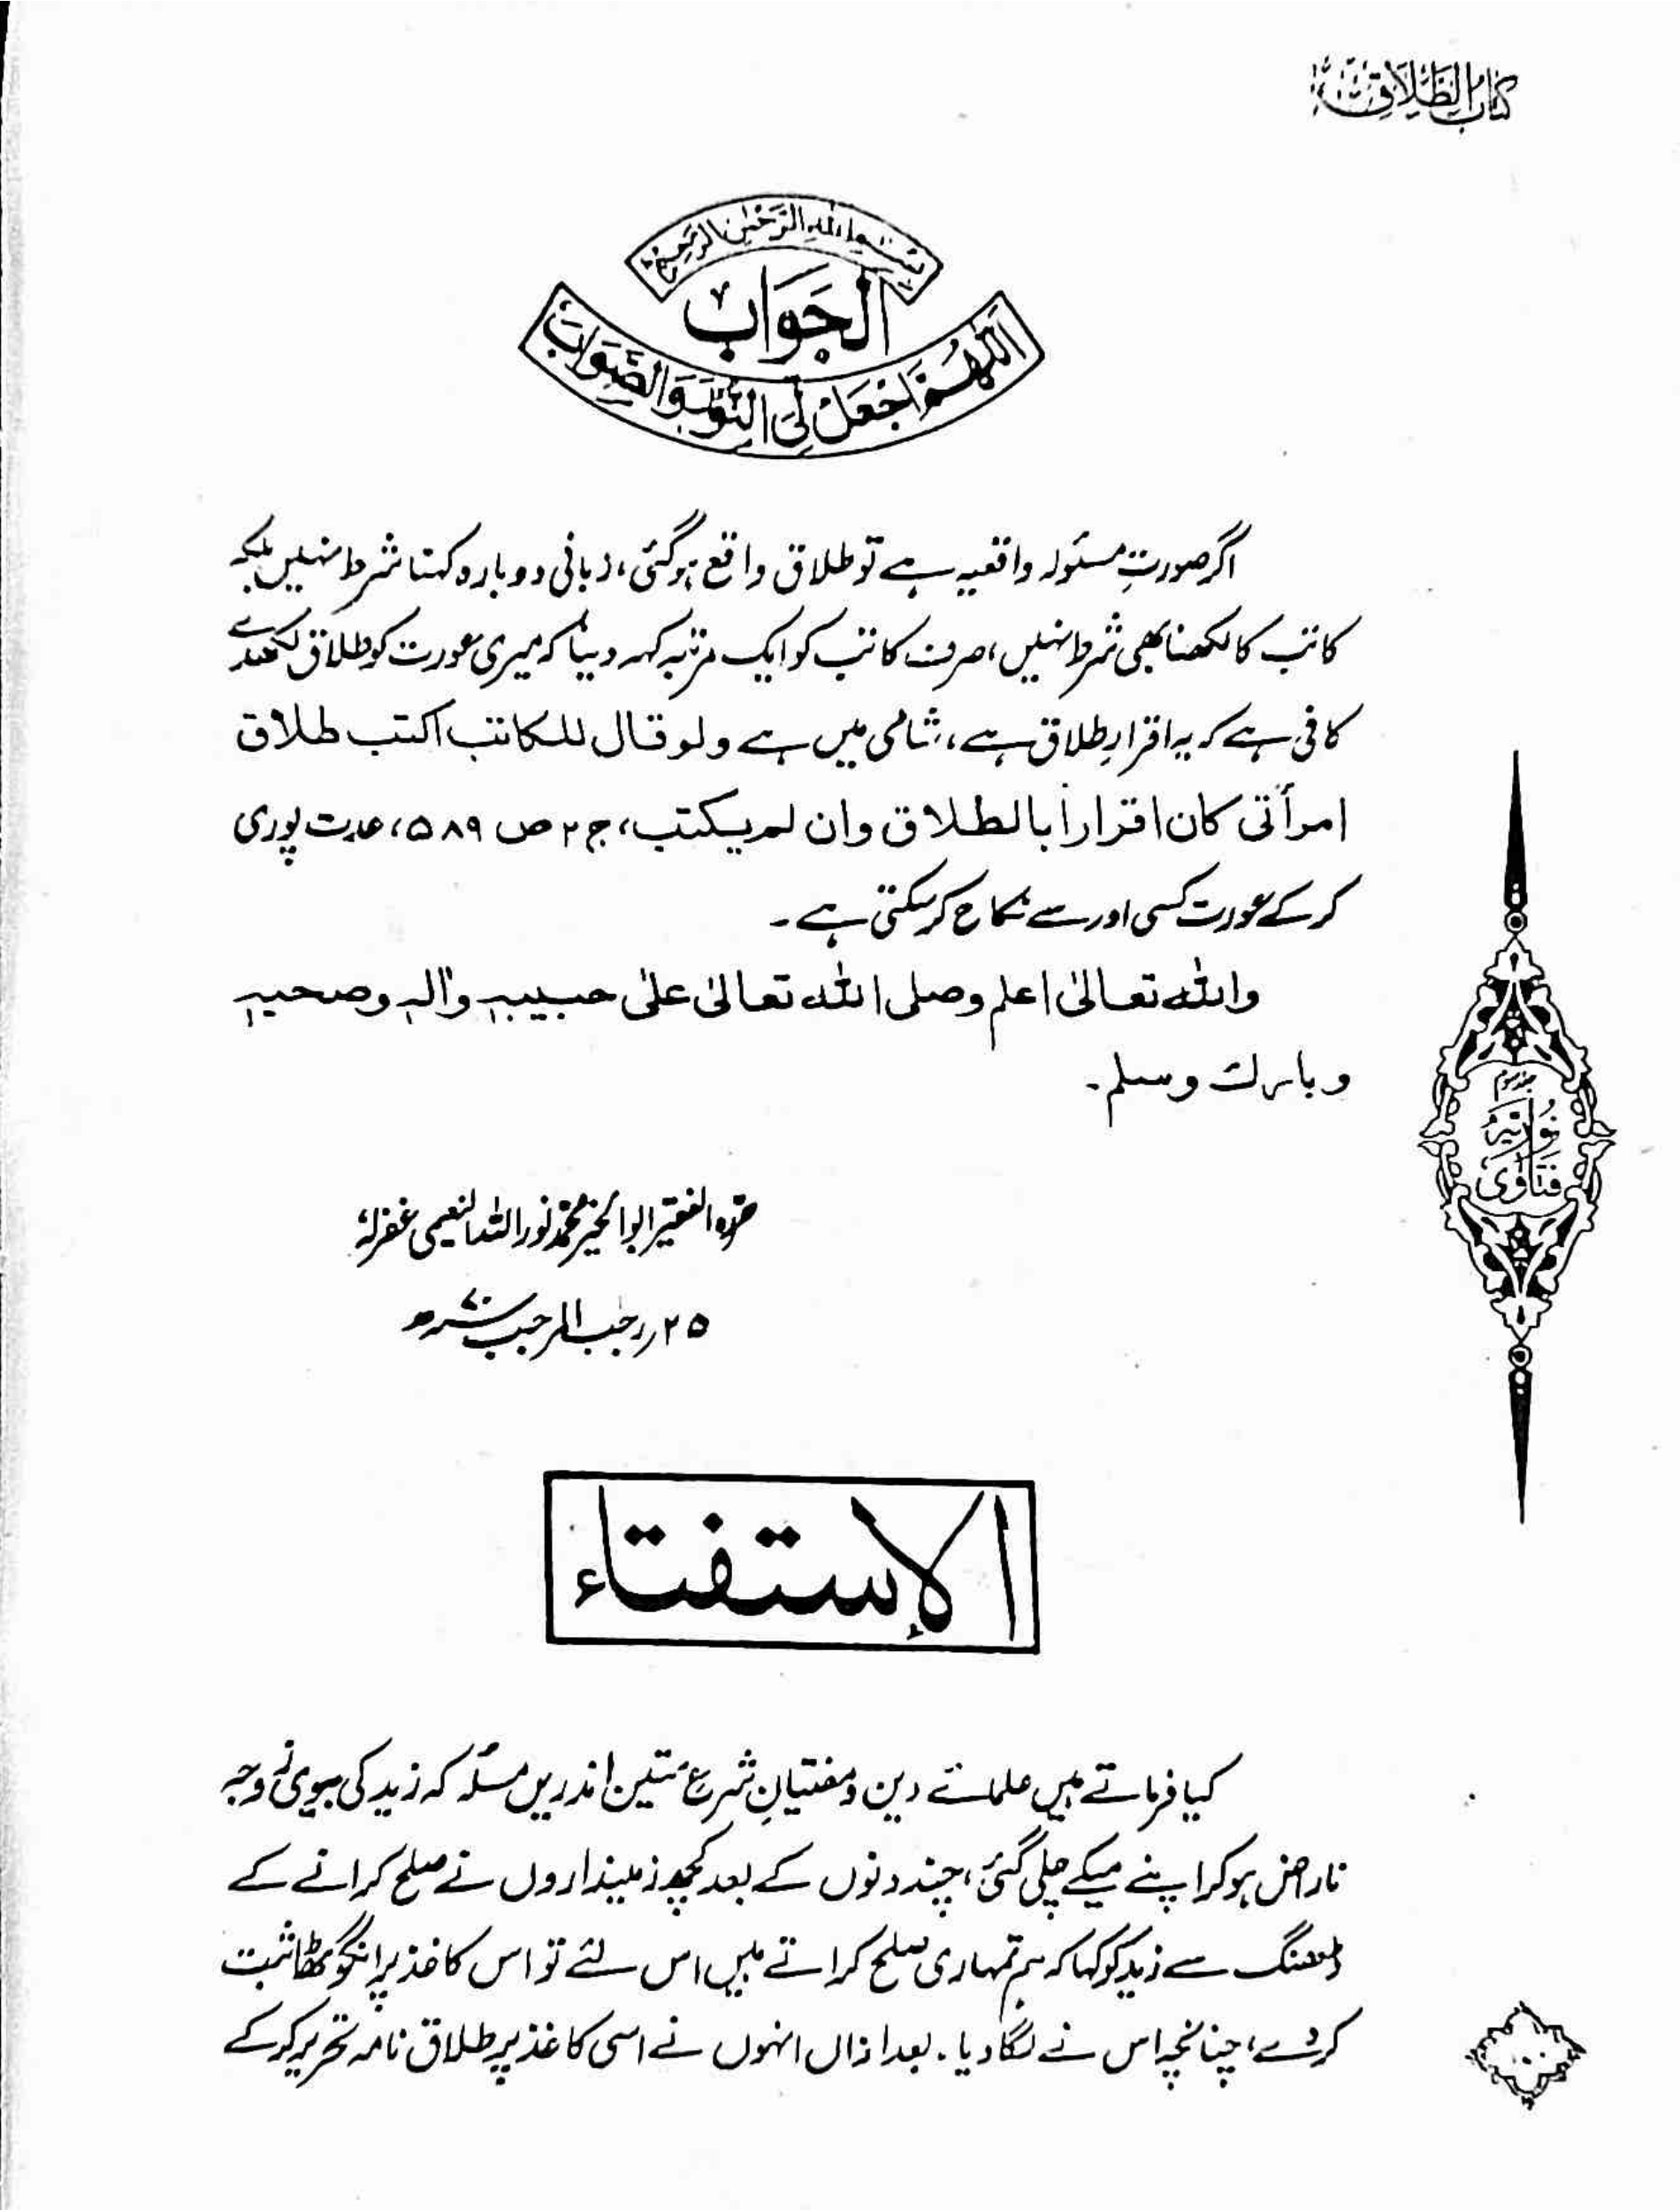 کتاب الطلاق
بسم الله الرحمن الرحيم
الجواب
اللهم اجعل لی النور والصواب
اگر صورتِ مسئولہ واقعیہ ہے تو طلاق واقع ہو گئی، زبانی دوبارہ کہنا شرط نہیں بلکہ
کاتب کا لکھنا بھی شرط نہیں، صرف کاتب کو ایک مرتبہ کہہ دینا کہ میری عورت کو طلاق لکھدے
کافی ہے کہ یہ اقرارِ طلاق ہے، شامی میں ہے ولو قال للکاتب اکتب طلاق
امرأتی کان اقراراً بالطلاق وان لم یکتب، ج ۲ ص ۵۸۹، عدت پوری
کر کے عورت کسی اور سے نکاح کر سکتی ہے ۔
والله تعالیٰ اعلم وصلی الله تعالیٰ علیٰ حبیبہٖ واٰلہٖ وصحبہٖ
وبارك وسلم ۔
حرره الفقیر ابوالخیر محمد نور الله النعیمی غفرلہٗ
۲۵ رجب المرجب
فتاوی نوریہ
الإستفتاء
کیا فرماتے ہیں علمائے دین و مفتیانِ شرع متین اندریں مسئلہ کہ زید کی بیوی وجہ
ناراض ہو کر اپنے میکے چلی گئی، چند دنوں کے بعد کچھ زمینداروں نے صلح کرانے کے
ڈھنگ سے زید کو کہا کہ ہم تمہاری صلح کراتے ہیں اس لئے تو اس کاغذ پر انگوٹھا ثبت
کر دے، چنانچہ اس نے لگا دیا ۔ بعد ازاں انہوں نے اسی کاغذ پر طلاق نامہ تحریر کر کے